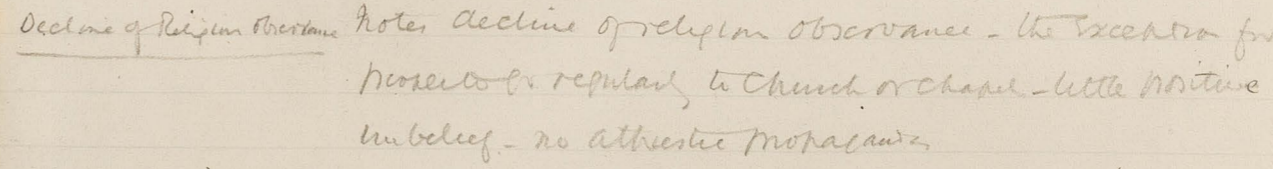 Decline of Religion Observance
Notes decline of religion observance - the exception for
people to go regularly to Church or chapel - little positive
unbelief - no atheistic propaganda